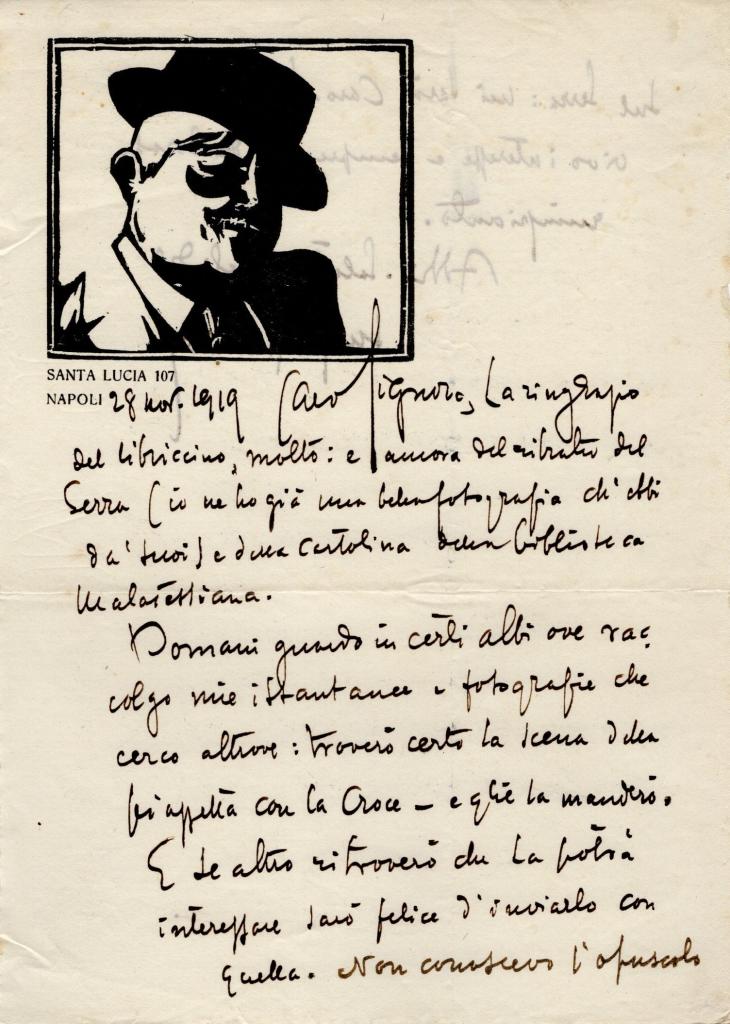 SANTA LUCIA 107
NAPOLI 28 nov. 1919 Caro Signore, La ringrazio
del libriccino, molto: e ancora del ritratto del
Serra (io ne ho già una bella fotografia ch'ebbi
da' suoi) e della cartolina della biblioteca
Malatestiana.
Domani guardo in certi albi ove rac-
colgo mie istantanee e fotografie che
cerco altrove: troverò certo la scena della
piazzetta con la Croce — e gliela manderò.
E se altro ritroverò che La potrà
interessare sarò felice d'inviarlo con
quella. Non conoscevo l'opuscolo